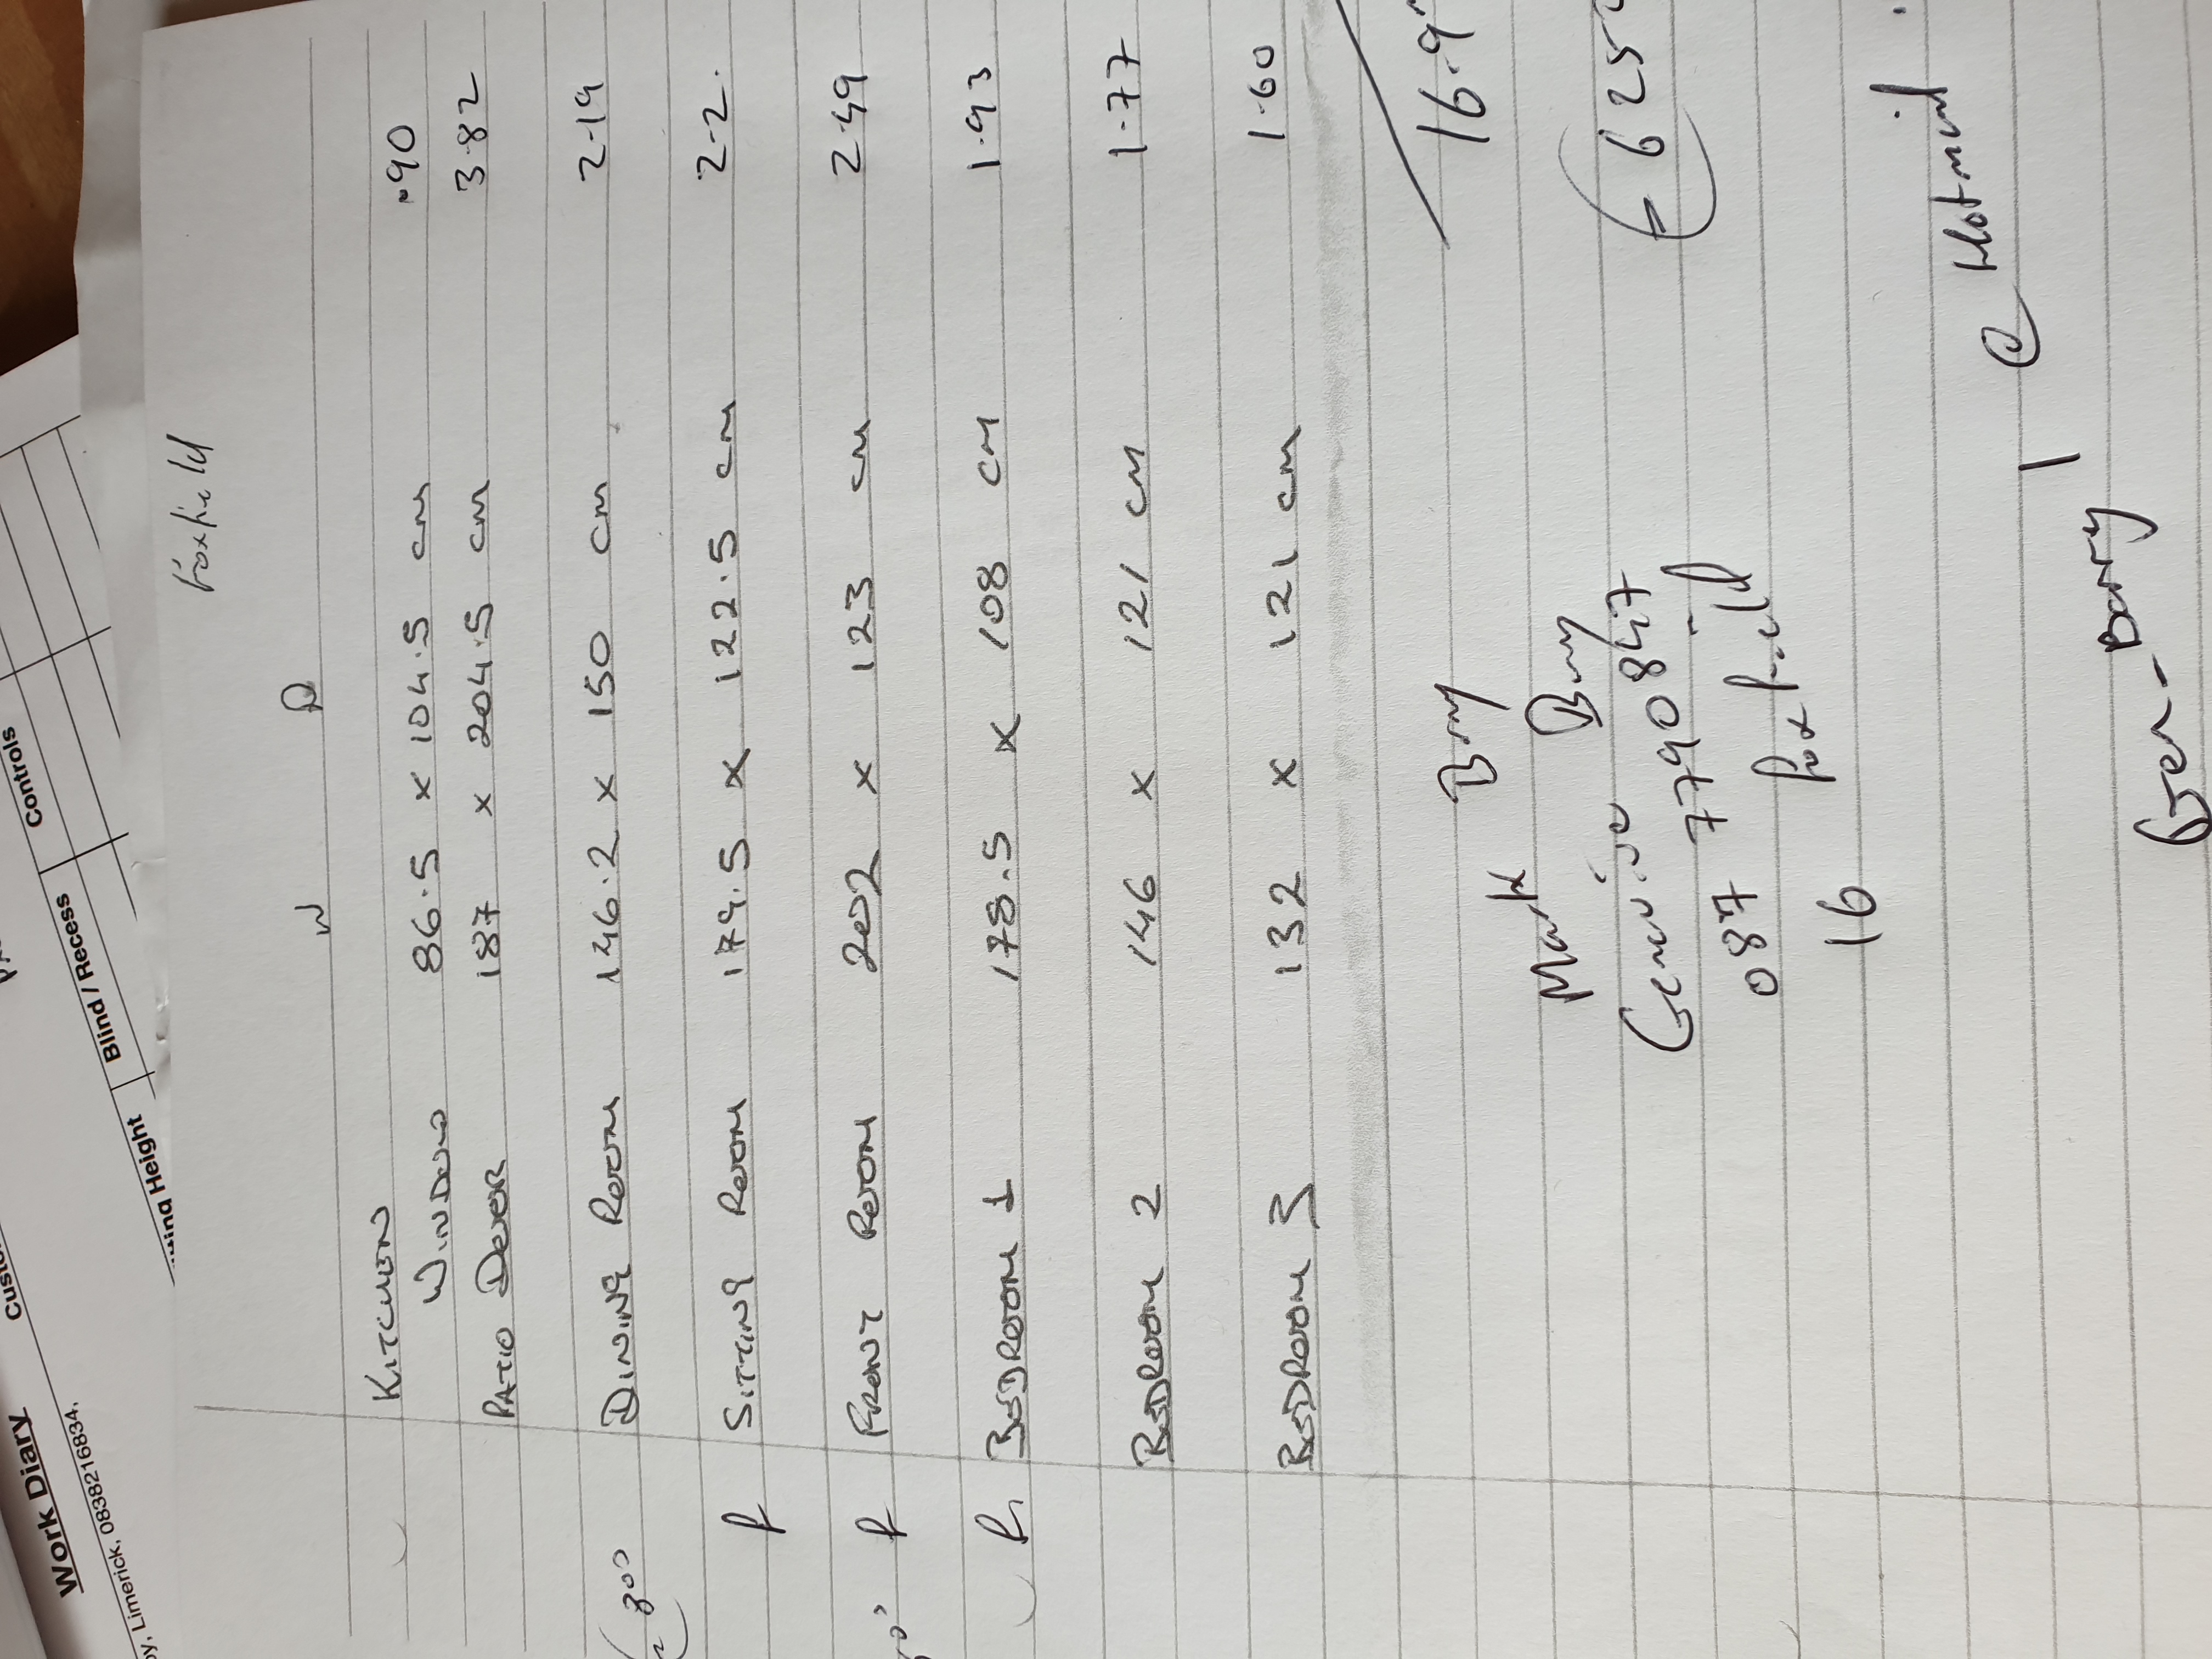 Work Diary
Limerick, 0838216834,
Blind / Recess
Controls
Height
Foxfield
W D
KITCHEN
WINDOW 86.5 x 104.5 cm .90
PATIO DOOR 187 x 204.5 cm 3.82
DINING ROOM 146.2 x 150 cm 2.19
SITTING ROOM 179.5 x 122.5 cm 2.2
FRONT ROOM 202 x 123 cm 2.49
BEDROOM 1 178.5 x 108 cm 1.93
BEDROOM 2 146 x 121 cm 1.77
BEDROOM 3 132 x 121 cm 1.60
16.9
Mark
087 7790847
16 Foxfield
@ Hotmail